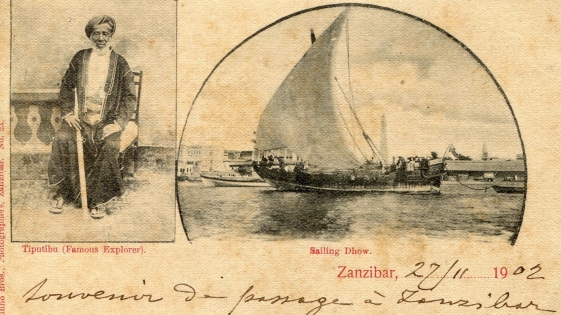 Tiputibu (Famous Explorer).
Sailing Dhow.
Zanzibar, 27/11 1902
souvenir de passage à Zanzibar
Bros., Photographers, Zanzibar. No. 23.